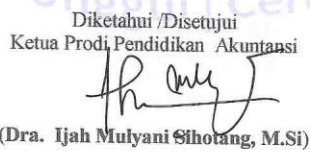 Diketahui /Disetujui
Ketua Prodi Pendidikan Akuntansi
(Dra. Ijah Mulyani Sihotang, M.Si)